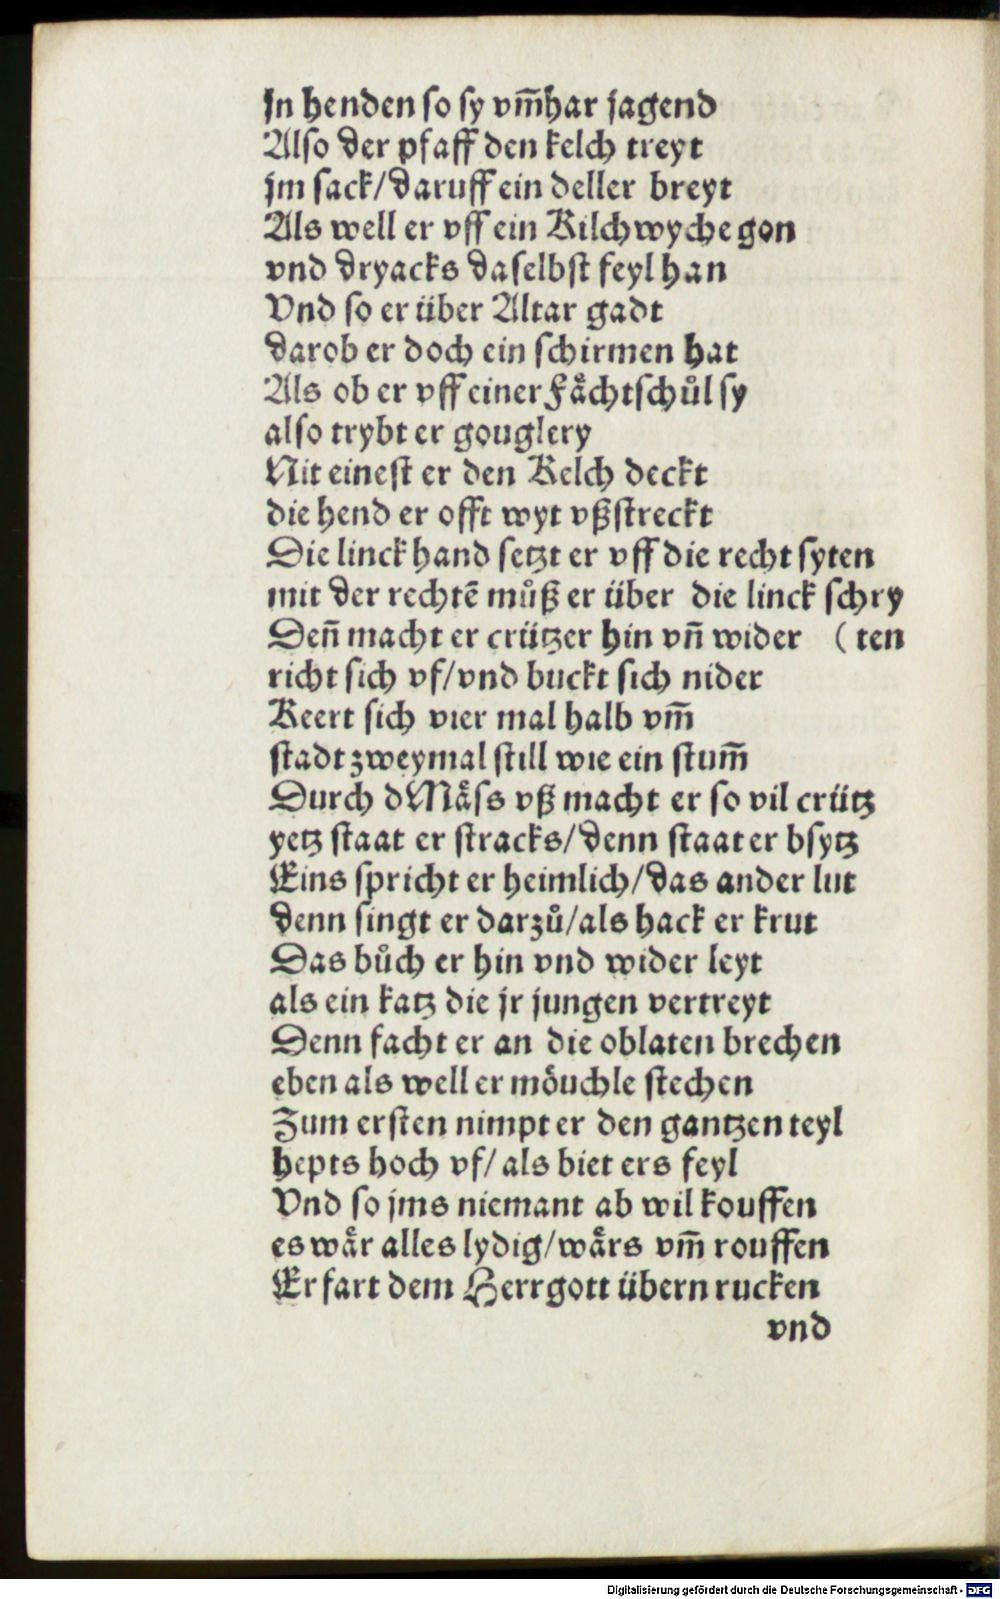 In henden so sy vm̄har jagend
Also der pfaff den kelch treyt
jm sack/daruff ein deller breyt
Als well er vff ein Kilchwyche gon
vnd dryacks daselbst feyl han
Vnd so er über Altar gadt
darob er doch ein schirmen hat
Als ob er vff einer Fåchtschůl sy
also trybt er gouglery
Nit einest er den Kelch deckt
die hend er offt wyt vßstreckt
Die linck hand setzt er vff die recht syten
mit der rechtē můß er über die linck schry
Deñ macht er crützer hin vñ wider (ten
richt sich vf/vnd buckt sich nider
Keert sich vier mal halb vm̄
stadt zweymal still wie ein stum̄
Durch dMåss vß macht er so vil crütz
yetz staat er stracks/denn staat er bsytz
Eins spricht er heimlich/das ander lut
denn singt er darzů/als hack er krut
Das bůch er hin vnd wider leyt
als ein katz die jr jungen vertreyt
Denn facht er an die oblaten brechen
eben als well er möuchle stechen
Zum ersten nimpt er den gantzen teyl
hepts hoch vf/als biet ers feyl
Vnd so jms niemant ab wil kouffen
es wår alles lydig/wårs vm̄ rouffen
Er fart dem Herrgott übern rucken
vnd
Digitalisierung gefördert durch die Deutsche Forschungsgemeinschaft - DFG